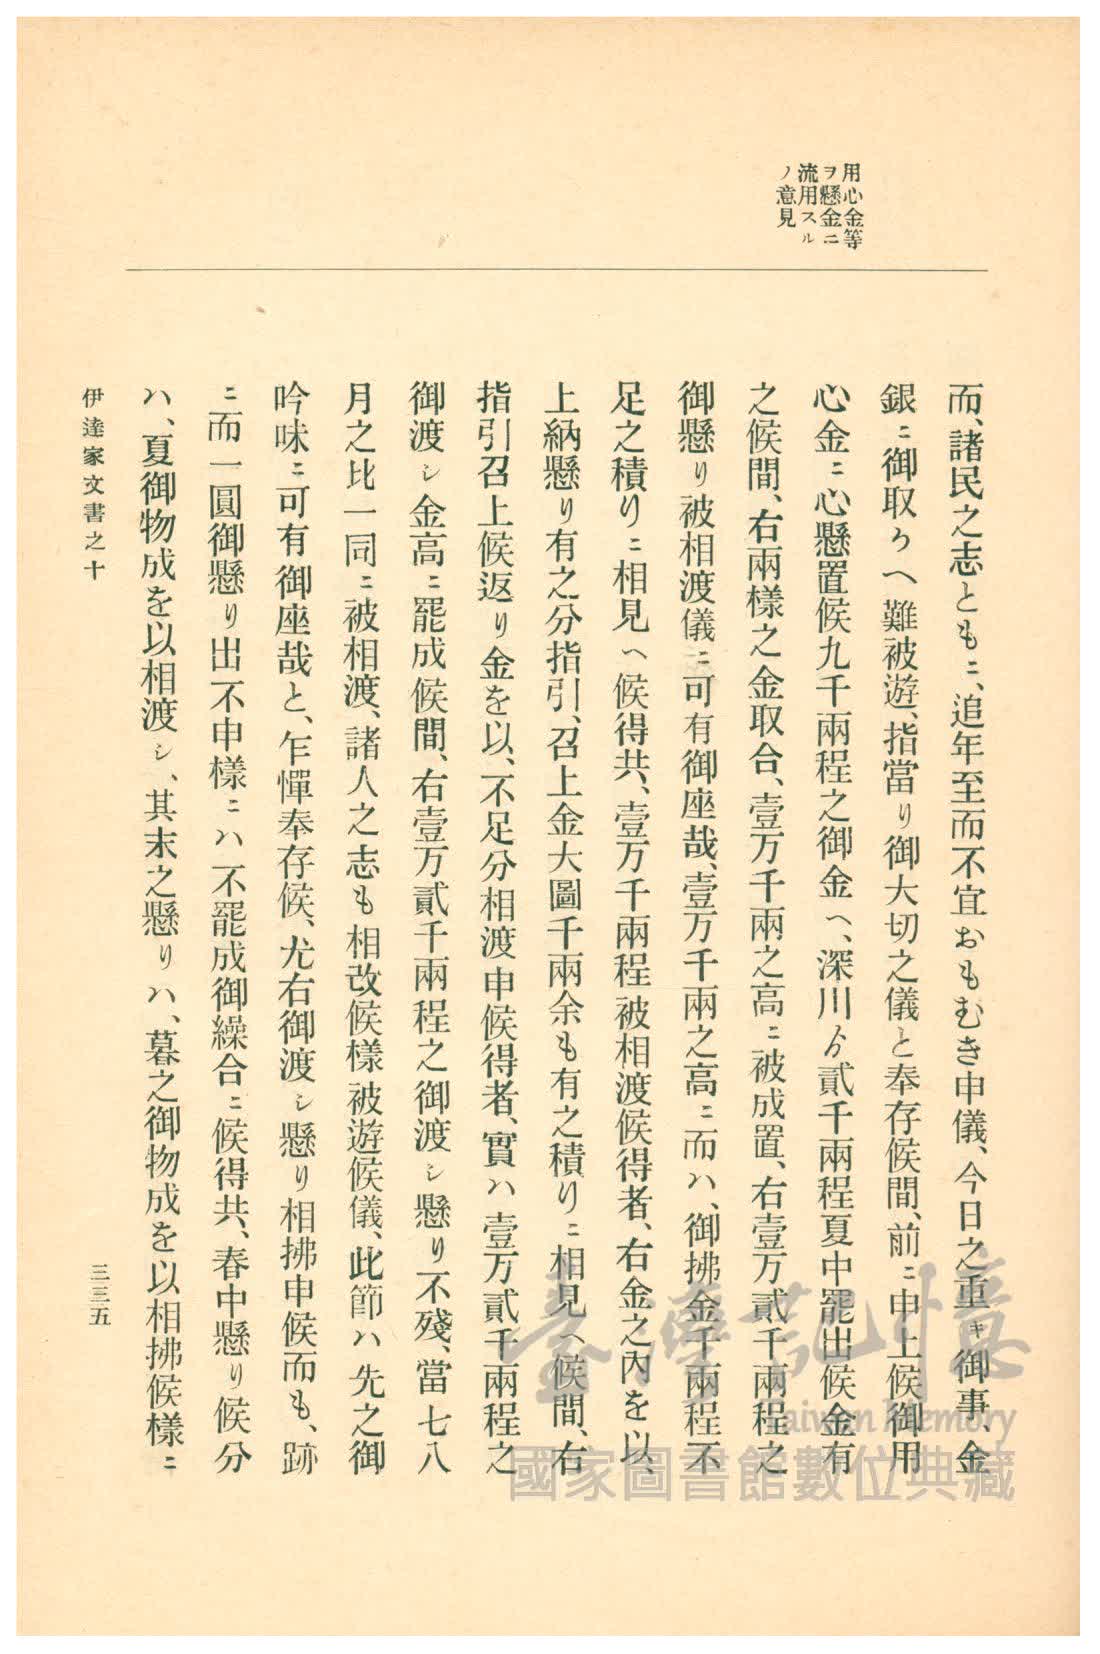 用心金等
ヲ懸金ニ
流用スル
ノ意見
而、諸民之志ともニ、追年至而不宜おもむき申儀、今日之重キ御事、金
銀ニ御取りヘ難被遊、指當り御大切之儀と奉存候間、前ニ申上候御用
心金ニ心懸置候九千兩程之御金ヘ、深川ゟ貳千兩程夏中罷出候金有
之候間、右兩樣之金取合、壹万千兩之高ニ被成置、右壹万貳千兩程之
御懸り被相渡儀ニ可有御座哉、壹万千兩之高ニ而ハ、御拂金千兩程不
足之積りニ相見ヘ候得共、壹万千兩程被相渡候得者、右金之內を以、
上納懸り有之分指引、召上金大圖千兩余も有之積りニ相見ヘ候間、右
指引召上候返り金を以、不足分相渡申候得者、實ハ壹万貳千兩程之
御渡シ金高ニ罷成候間、右壹万貳千兩程之御渡シ懸り不殘、當七八
月之比一同ニ被相渡、諸人之志も相改候樣被遊候儀、此節ハ先之御
吟味ニ可有御座哉と、乍憚奉存候、尤右御渡シ懸り相拂申候而も、跡
ニ而一圓御懸り出不申樣ニハ不罷成御繰合ニ候得共、春中懸り候分
ハ、夏御物成を以相渡シ、其末之懸りハ、暮之御物成を以相拂候樣ニ
伊達家文書之十
三三五
臺灣記憶
Taiwan Memory
國家圖書館數位典藏